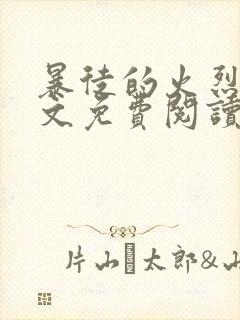 暴徒的火烈
文免費閱讀
片山太郎&山